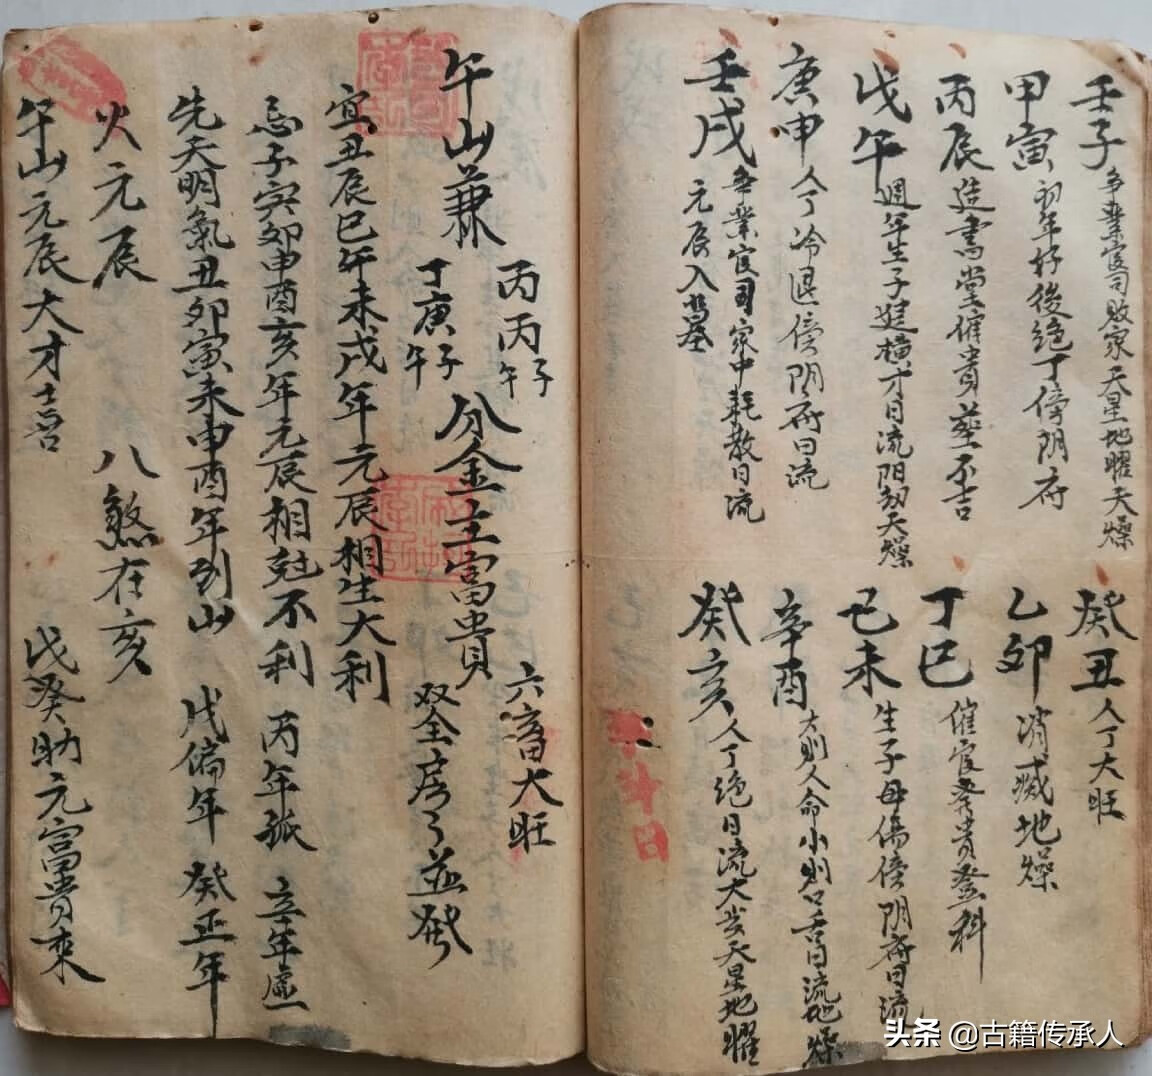 壬子 争業官司敗家天星地曜天燥
癸丑 人丁大旺
甲寅 初年好後绝丁傍阴府
乙卯 消滅地燥
丙辰 造書堂催貴葬不吉
丁巳 催官奉贵登科
戊午 週年生子進横才日流阳刃天燥
己未 生子母傷傍阴府日流
庚申 人丁冷退傍阴府日流
辛酉 大則人命小則口舌日流地燥
壬戌 争業官司家中耗散日流
元辰入墓
癸亥 人丁绝日流大出天星地曜
午山兼
丙子 丙午
丁庚子午
分金主富貴
六畜大旺
双全房〻並發
宜丑辰巳午未戌年元辰相生大利
忌子寅卯申酉亥年元辰相尅不利 丙年孤 辛年虚
先天明氣丑卯寅未申酉年到山 戊偏年 癸正年
火元辰 八煞在亥
午山元辰大才喜 戊癸助元富貴来
头条 @古籍传承人